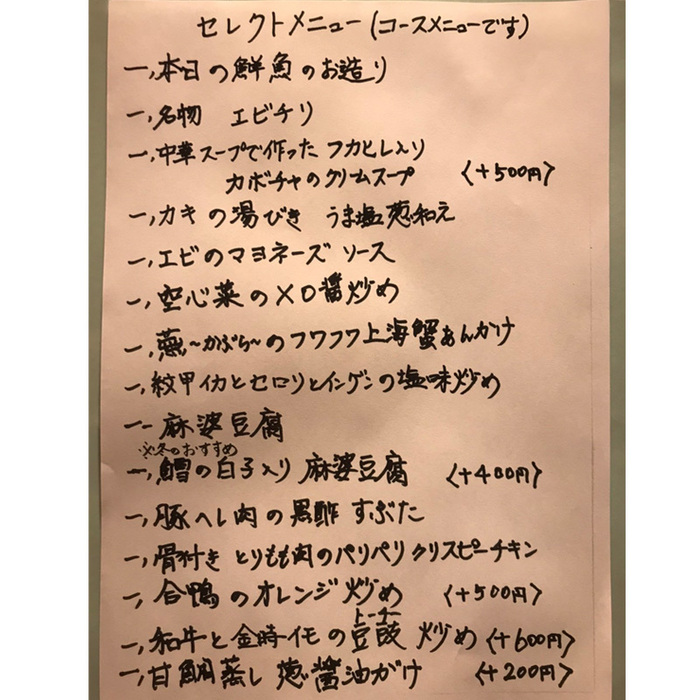 セレクトメニュー(コースメニューです)
一、本日の鮮魚のお造り
一、名物 エビチリ
一、中華スープで作った フカヒレ入り
カボチャのクリームスープ 〈+500円〉
一、カキの湯びき うま塩葱和え
一、エビのマヨネーズ ソース
一、空心菜のXO醤炒め
一、蕪〜かぶら〜のフワフワ上海蟹あんかけ
一、紋甲イカとセロリとインゲンの塩味炒め
一、麻婆豆腐
※冬のおすすめ
一、鱈の白子入り 麻婆豆腐 〈+400円〉
一、豚ヘレ肉の黒酢 すぶた
一、骨付き とりもも肉のパリパリクリスピーチキン
一、合鴨のオレンジ炒め 〈+500円〉
トーチー
一、和牛と金時イモの豆豉 炒め〈+600円〉
一、甘鯛蒸し 葱醤油がけ 〈+200円〉